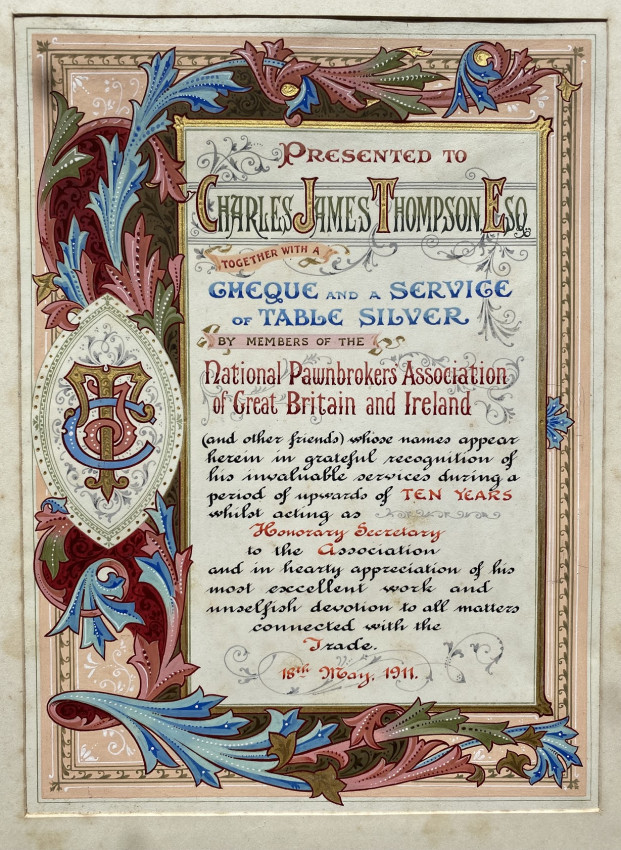 PRESENTED TO
CHARLES JAMES THOMPSON, ESQ.
TOGETHER WITH A
CHEQUE AND A SERVICE
OF TABLE SILVER
BY MEMBERS OF THE
National Pawnbrokers Association
of Great Britain and Ireland
(and other friends) whose names appear
herein in grateful recognition of
his invaluable services during a
period of upwards of TEN YEARS
whilst acting as
Honorary Secretary
to the Association
and in hearty appreciation of his
most excellent work and
unselfish devotion to all matters
connected with the
Trade.
18th May, 1911.